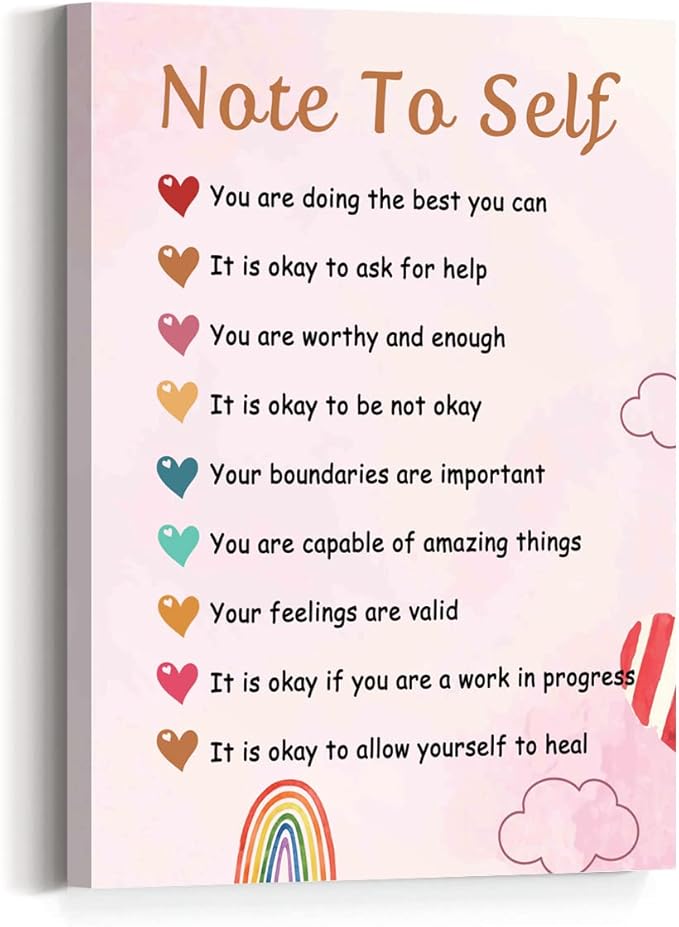 Note To Self
You are doing the best you can
It is okay to ask for help
You are worthy and enough
It is okay to be not okay
Your boundaries are important
You are capable of amazing things
Your feelings are valid
It is okay if you are a work in progress
It is okay to allow yourself to heal